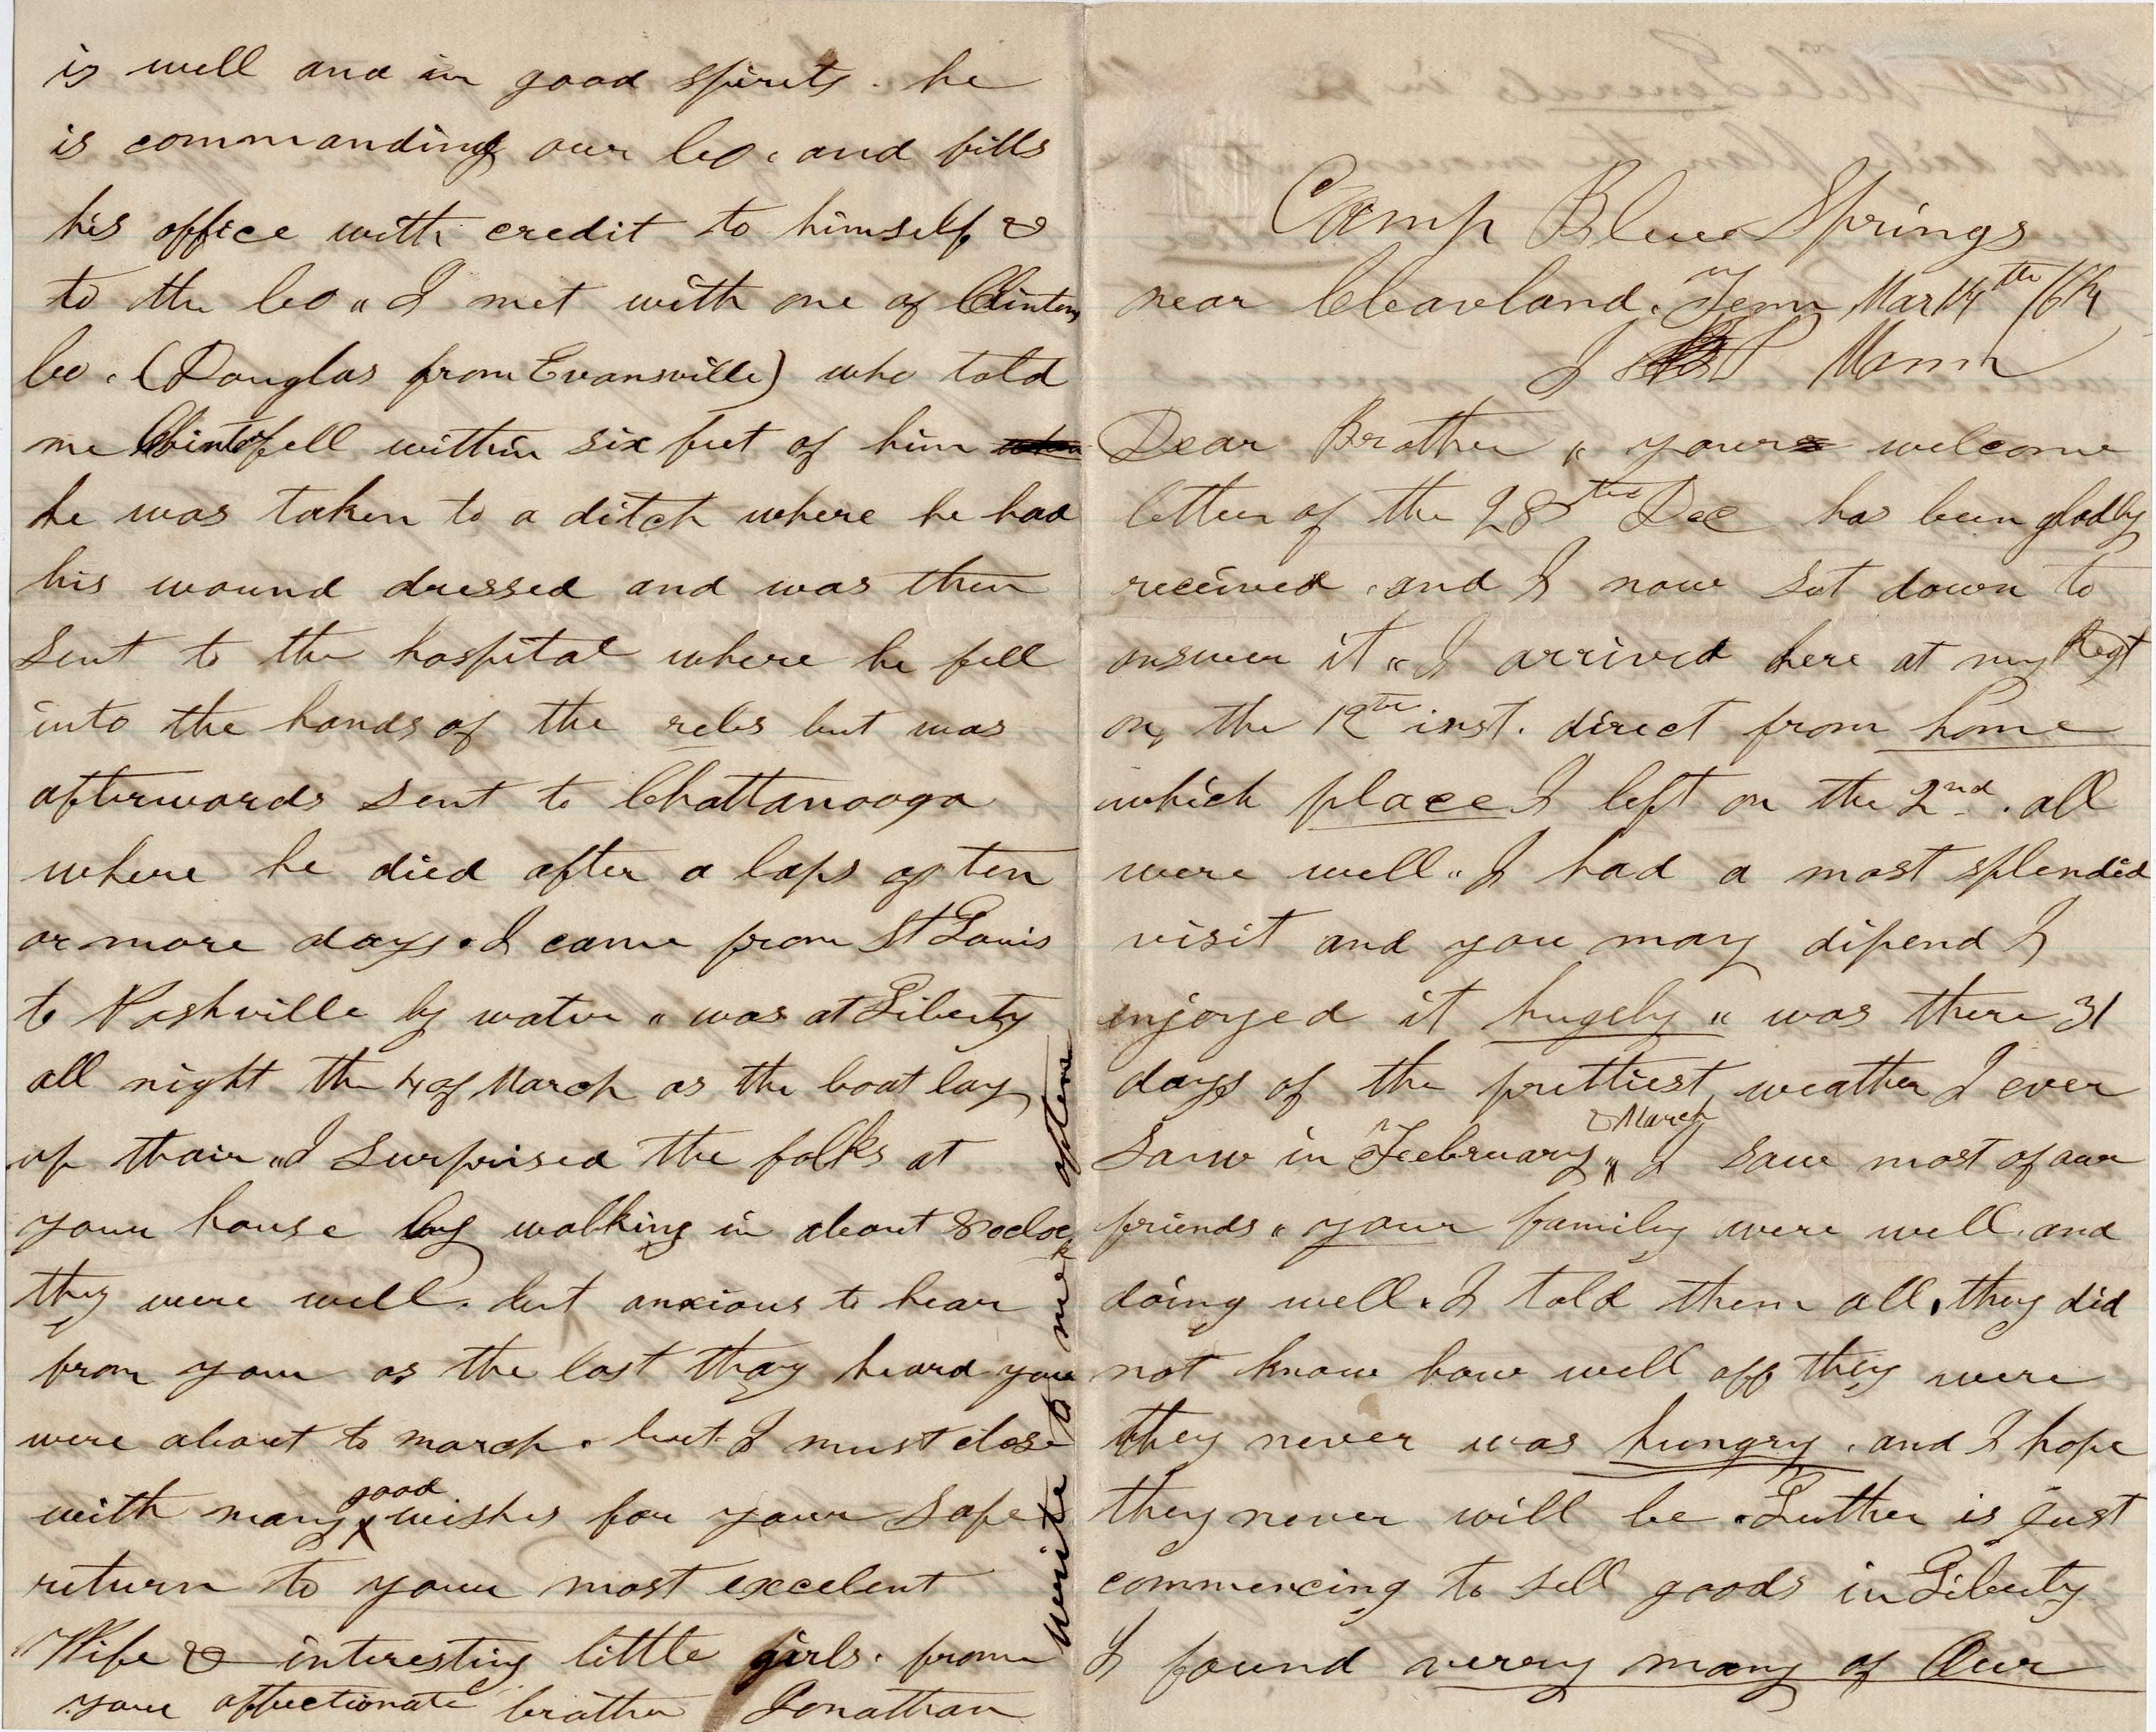 Camp Blue Springs
near Cleavland. Tenn Mar 14th /64
J P Mann
Dear Brother „ your welcome
letter of the 28th Dec has been gladly
received . and I now set down to
answer it „ I arrived here at my Regt
on the 12th inst. direct from home
which place I left on the 2nd. all
were well „ I had a most splendid
visit and you may dipend I
injoyed it hugely „ was there 31
days of the prettiest weather I ever
& March
Saw in Feebruary „ I saw most of our
friends „ your family were well. and
doing well. I told them all. they did
not know how well off they were
they never was hungry . and I hope
they never will be . Luther is just
commencing to sell goods in Liberty
I found verry many of Our
is well and in good spirits . he
is commanding our Co. and fills
his office with credit to himself &
to the Co „ I met with one of Clintons
Co. (Douglas from Evansville) who told
me Clint fell within six feet of him
he was taken to a ditch where he had
his wound dressed and was then
sent to the hospital where he fell
into the hands of the rebs but was
afterwards sent to Chattanooga
where he died after a laps of ten
or more days . I came from St Louis
to Nashville by water „ was at Liberty
all night the 4 of March as the boat lay
up thair „ I surprised the folks at
your house by walking in about 8 oclock
they were well. but anxious to hear
from you as the last thay heard you
were about to march . but I must close
good
with many wishes for your safe
return to your most excelent
Wife & interesting little girls . from
your affectionate brother Jonathan
write to me oftene